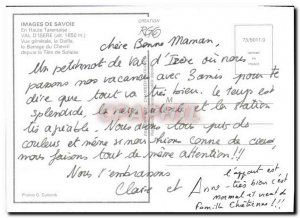 IMAGES DE SAVOIE
En Haute Tarentaise
VAL D'ISERE (alt. 1850 m.)
Vue générale, la Daille,
le Barrage du Chevril
depuis la Tête de Solaise
CREATION
R576
73/6011/9
Chère Bonne Maman,
Un petit mot de Val d'Isère où nous
passons nos vacances avec 3 amis pour te
dire que tout va très bien. Le temps est
splendide, la neige aussi et la station
très agréable. Nous avons tous pris des
couleurs et même si nous skions comme des
nous faisons tout de même attention!!
Nous t'embrassons
Claire et Anne
l'appart est
très bien c'est
normal il vient de
Famille Chrétienne!!!